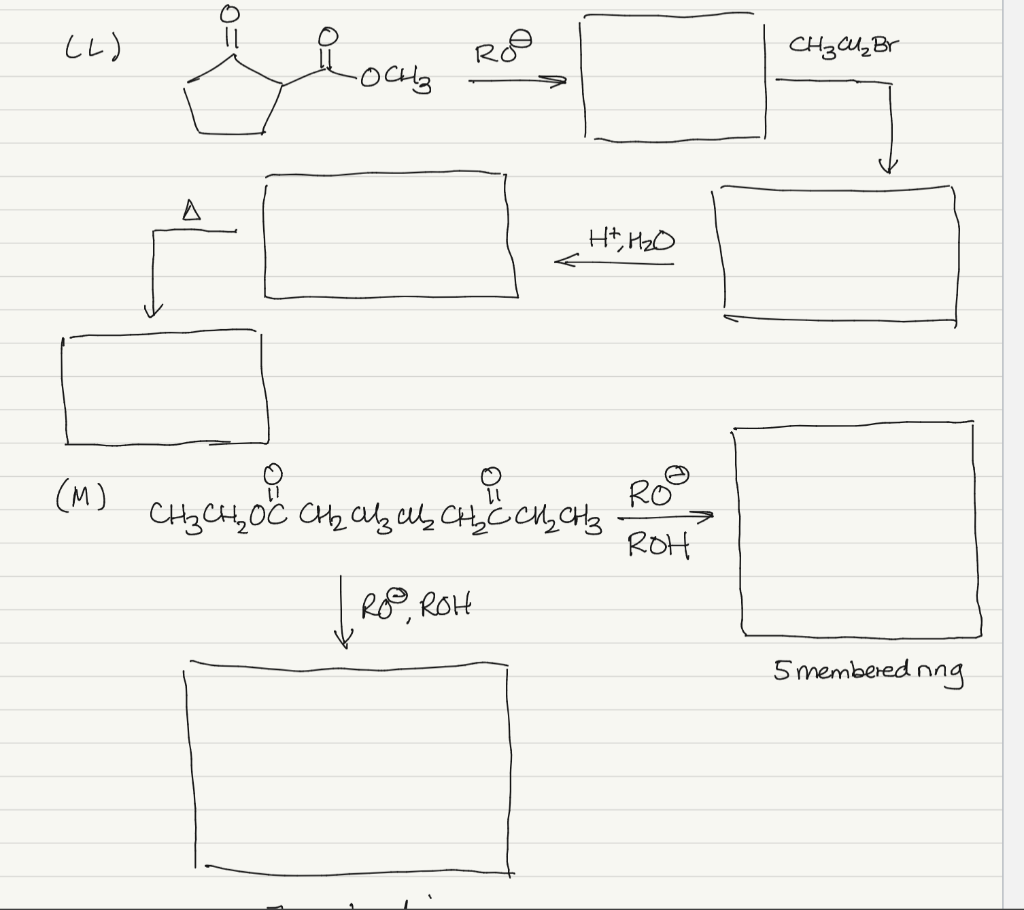 (L) O O OCH3 RO⊖ CH3CH2Br
Δ H+, H2O
(M) CH3CH2OC CH2 CH3 CH2 CH2C CH2CH3 RO⊖
O O
ROH
RO⊖, ROH
5 membered ring